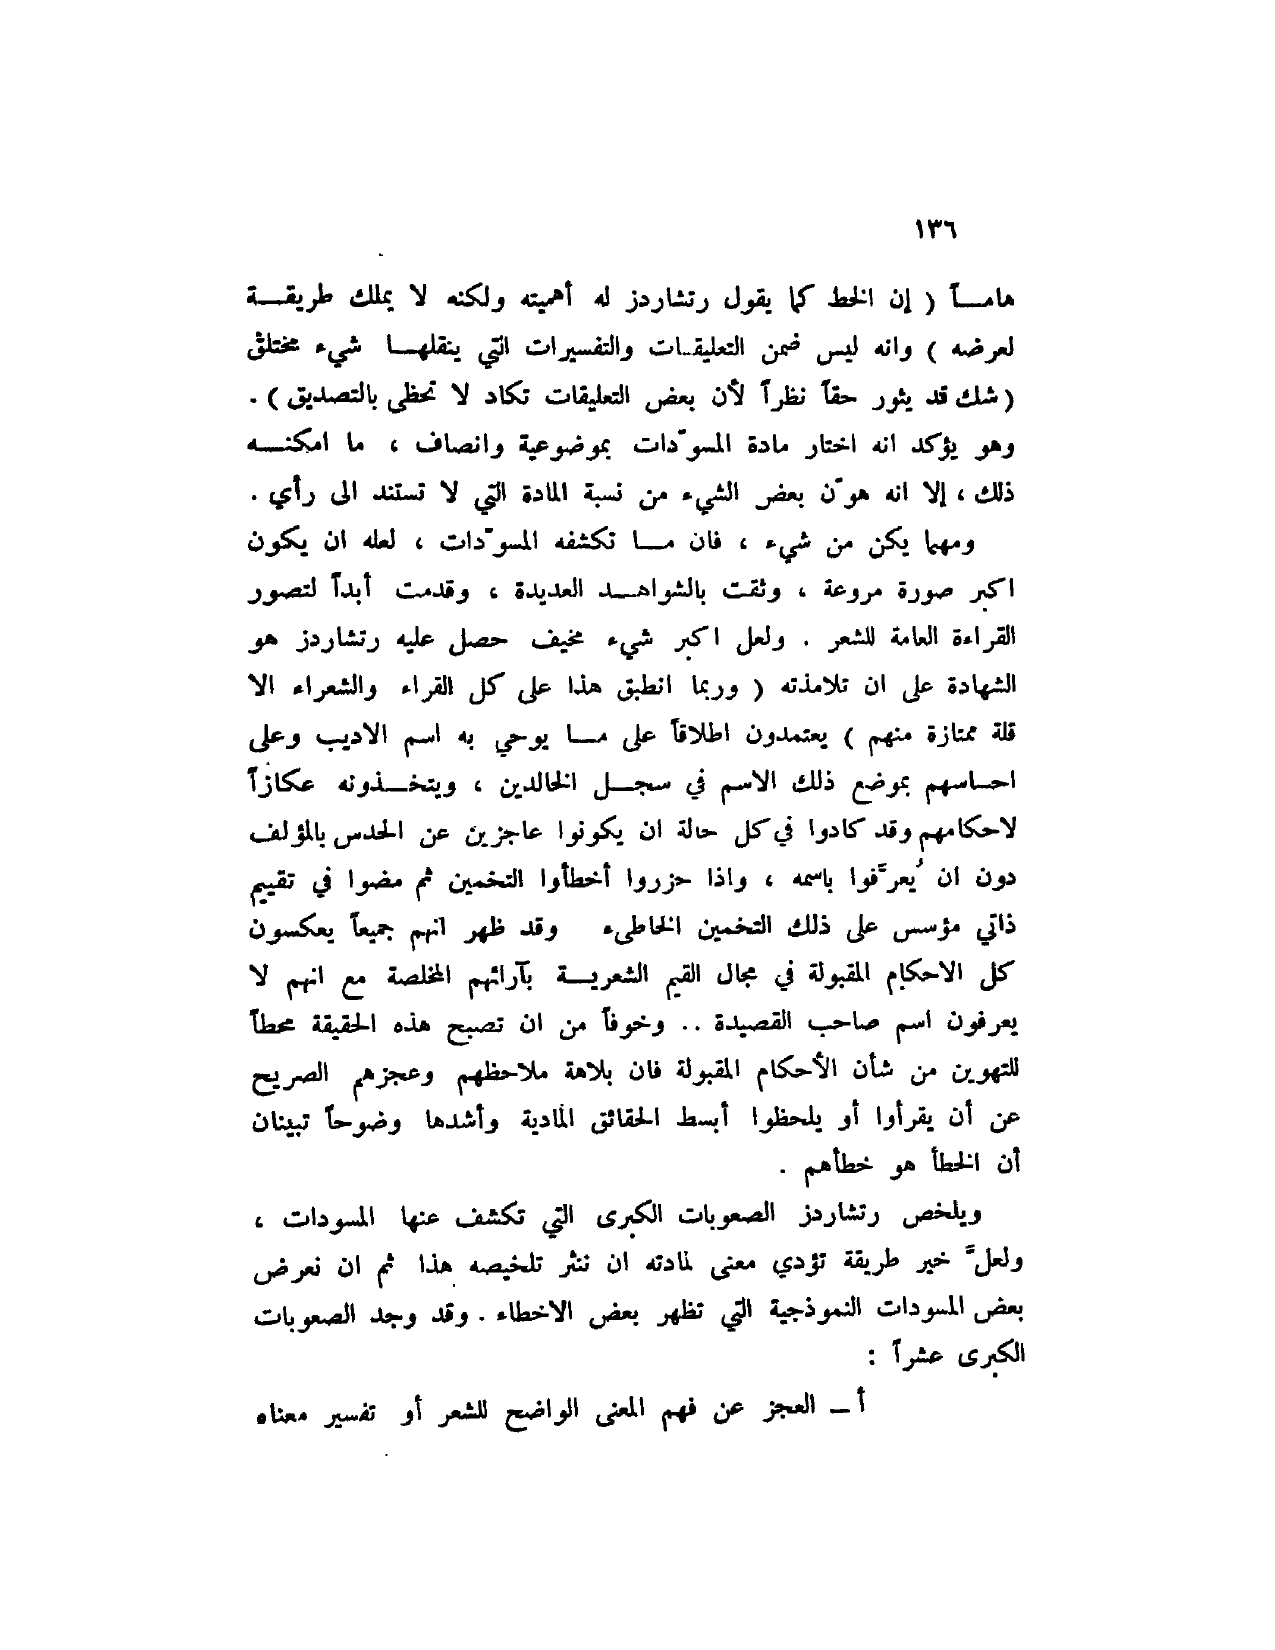 ١٣٦
هامـــاً ( إن الخط كما يقول رتشاردز له أهميته ولكنه لا يملك طريقـــة
لعرضه ) وانه ليس ضمن التعليقـات والتفسيرات التي ينقلهـــا شيء مختلق
( شك قد يثور حقاً نظراً لأن بعض التعليقات تكاد لا تحظى بالتصديق ) .
وهو يؤكد انه اختار مادة المسوّدات بموضوعية وانصاف ، ما امكنـــه
ذلك ، إلا انه هوّن بعض الشيء من نسبة المادة التي لا تستند الى رأي .
ومهما يكن من شيء ، فان مـــا تكشفه المسوّدات ، لعله ان يكون
اكبر صورة مروعة ، وثقت بالشواهـــد العديدة ، وقدمت أبداً لتصور
القراءة العامة للشعر . ولعل اكبر شيء مخيف حصل عليه رتشاردز هو
الشهادة على ان تلامذته ( وربما انطبق هذا على كل القراء والشعراء الا
قلة ممتازة منهم ) يعتمدون اطلاقاً على مـــا يوحي به اسم الاديب وعلى
احساسهم بموضع ذلك الاسم في سجـــل الخالدين ، ويتخـــذونه عكازاً
لاحكامهم وقد كادوا في كل حالة ان يكونوا عاجزين عن الحدس بالمؤلف
دون ان يُعرَّفوا باسمه ، واذا حزروا أخطأوا التخمين ثم مضوا في تقييم
ذاتي مؤسس على ذلك التخمين الخاطىء وقد ظهر انهم جميعاً يعكسون
كل الاحكام المقبولة في مجال القيم الشعريـــة بآرائهم المخلصة مع انهم لا
يعرفون اسم صاحب القصيدة .. وخوفاً من ان تصبح هذه الحقيقة محطاً
للتهوين من شأن الأحكام المقبولة فان بلاهة ملاحظهم وعجزهم الصريح
عن أن يقرأوا أو يلحظوا أبسط الحقائق المادية وأشدها وضوحاً تبينان
أن الخطأ هو خطأهم .
ويلخص رتشاردز الصعوبات الكبرى التي تكشف عنها المسودات ،
ولعلَّ خير طريقة تؤدي معنى لمادته ان ننثر تلخيصه هذا ثم ان نعرض
بعض المسودات النموذجية التي تظهر بعض الاخطاء . وقد وجد الصعوبات
الكبرى عشراً :
أ ــ العجز عن فهم المعنى الواضح للشعر أو تفسير معناه